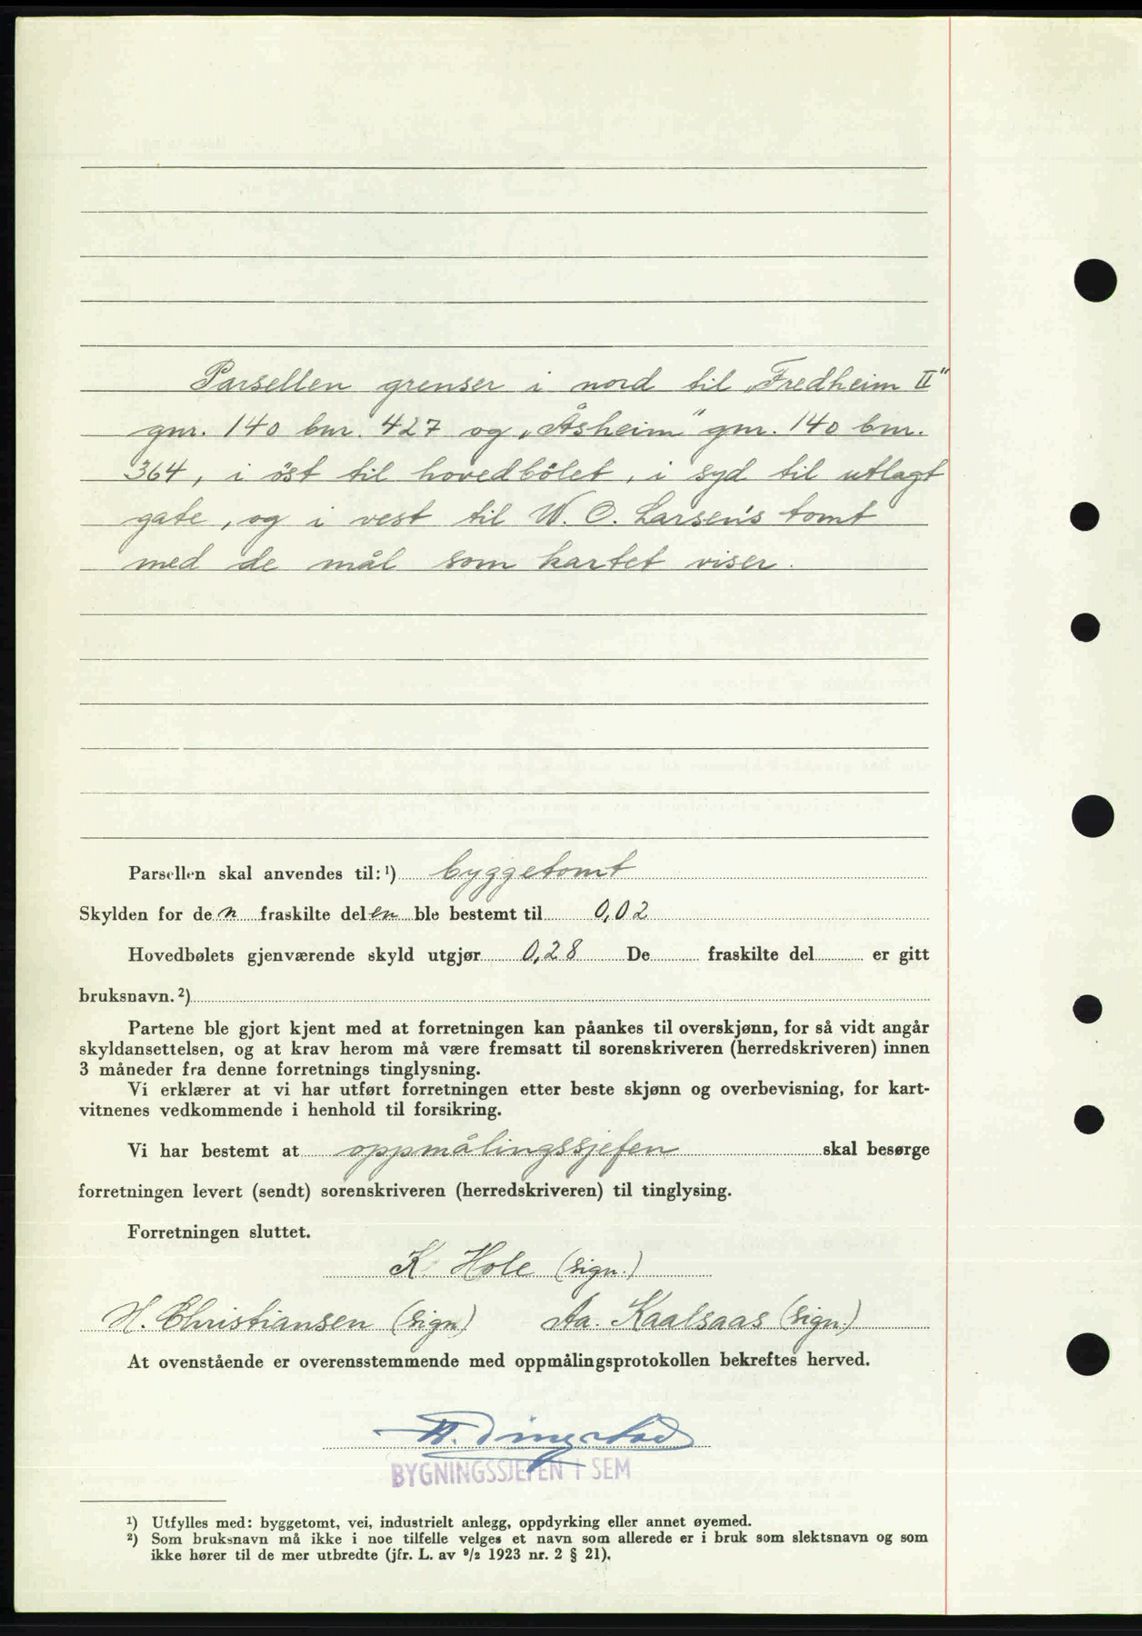 Parsellen grenser i nord til „Fredheim II"
gnr. 140 bnr. 427 og „Åsheim" gnr. 140 bnr.
364, i öst til hovedbölet, i syd til utlagt
gate, og i vest til W. O. Larsen's tomt
med de mål som kartet viser.
Parsellen skal anvendes til: ¹) byggetomt
Skylden for den fraskilte delen ble bestemt til 0,02
Hovedbølets gjenværende skyld utgjør 0,28 De fraskilte del er gitt
bruksnavn. ²)
Partene ble gjort kjent med at forretningen kan påankes til overskjønn, for så vidt angår
skyldansettelsen, og at krav herom må være fremsatt til sorenskriveren (herredskriveren) innen
3 måneder fra denne forretnings tinglysning.
Vi erklærer at vi har utført forretningen etter beste skjønn og overbevisning, for kart-
vitnenes vedkommende i henhold til forsikring.
Vi har bestemt at oppmålingssjefen skal besørge
forretningen levert (sendt) sorenskriveren (herredskriveren) til tinglysing.
Forretningen sluttet.
K. Hole (sign.)
H. Christiansen (sign) Aa. Kaalsaas (sign.)
At ovenstående er overensstemmende med oppmålingsprotokollen bekreftes herved.
BYGNINGSSJEFEN I SEM
¹) Utfylles med: byggetomt, vei, industrielt anlegg, oppdyrking eller annet øyemed.
²) Som bruksnavn må ikke i noe tilfelle velges et navn som allerede er i bruk som slektsnavn og som
ikke hører til de mer utbredte (jfr. L. av ⁹/₂ 1923 nr. 2 § 21).